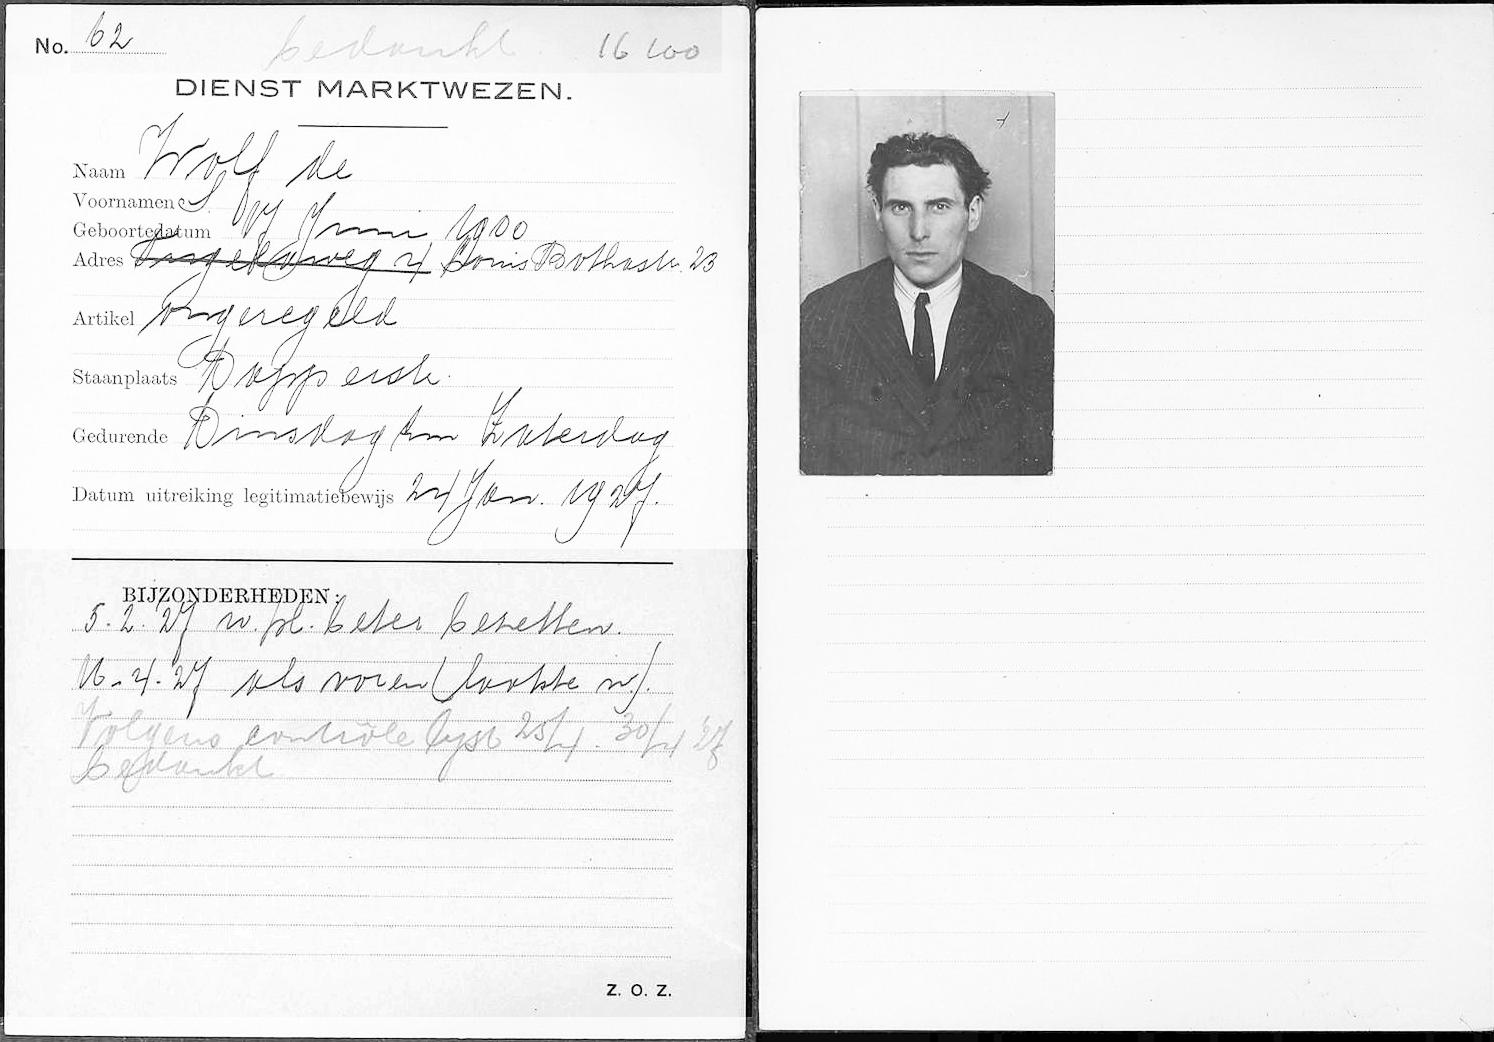 No. 62 bedankt 16100
DIENST MARKTWEZEN.
Naam Wolf de
Voornamen S
Geboortedatum 17 Juni 1900
Adres Louis Bothastr. 23
Artikel ongeregeld
Staanplaats Dapperstr.
Gedurende Dinsdag t/m Zaterdag
Datum uitreiking legitimatiebewijs 24 Jan. 1927.
BIJZONDERHEDEN:
5.2.27 w. pl. beter bezetten.
16-4-27 als voren (laatste w.).
Volgens contrôle lijst 25/4. 30/4 '27
bedankt
Z. O. Z.